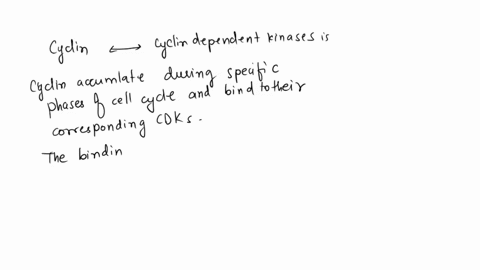 Cyclin ⟷ cyclin dependent kinases is
Cyclin accumlate during specific
phases of cell cycle and bind to their
corresponding CDKs.
The bindin